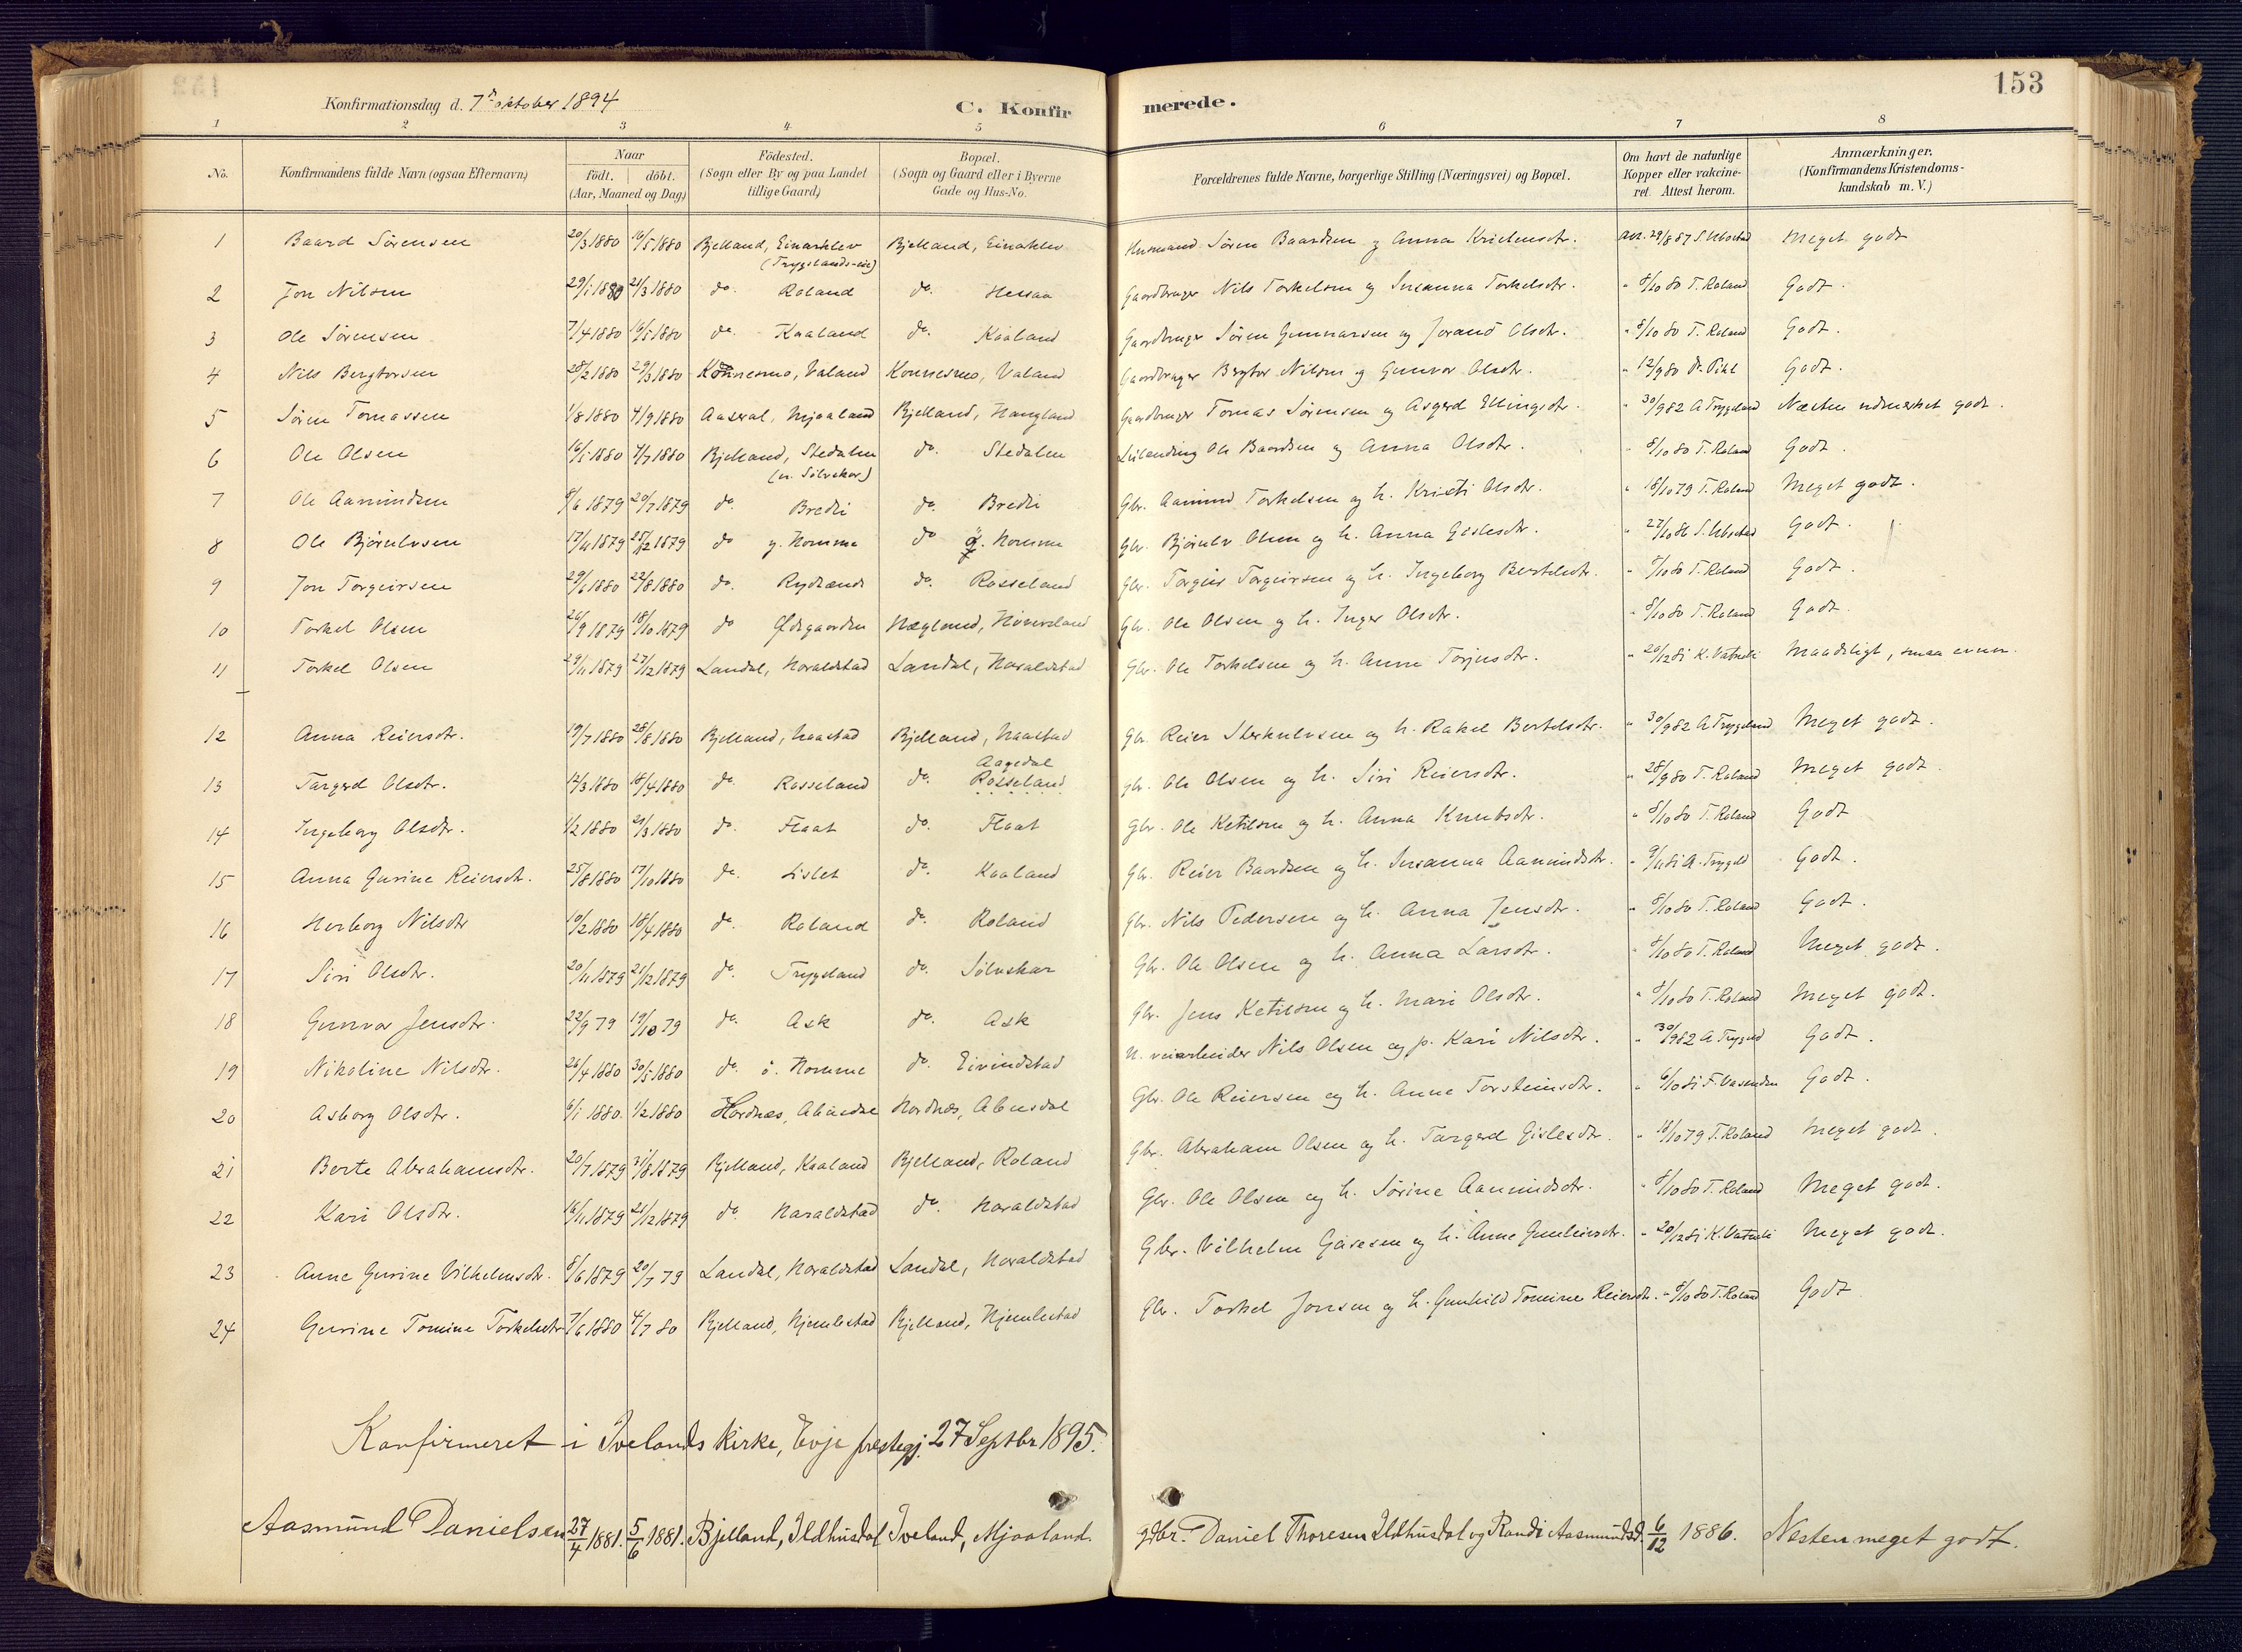 153
Konfirmationsdag d. 7de oktober 1894
C. Konfirmerede.
1 2 3 4 5 6 7 8
No. Konfirmandens fulde Navn (ogsaa Efternavn) Naar födt. döbt. (Aar, Maaned og Dag) Födested. (Sogn eller By og paa Landet tillige Gaard) Bopæl. (Sogn og Gaard eller i Byerne Gade og Hus-No. Forældrenes fulde Navne, borgerlige Stilling (Næringsvei) og Bopæl. Om havt de naturlige Kopper eller vakcineret. Attest herom. Anmærkninger. (Konfirmandens Kristendomskundskab m. V.)
1 Baard Sörensen 20/3 1880 16/5 1880 Bjelland, (Tryglands-eie) Bjelland, Husmand Sören Baardsen og Anna 29/8 87 S. Ubostad Meget godt
2 Jon Nilsen 29/1 1880 21/3 1880 do. Røland do. Hessaa Gaardbruger Nils Torkelsen og Susanna Torkelsdtr. " 8/10 80 T. Røland Godt.
3 Ole Sörensen 7/4 1880 16/5 1880 do. Kaaland do. Kaaland Gaardbruger Sören Gunnarsen og Jorand Olsdtr. " 8/10 80 T. Røland Godt.
4 Nils Bergtorsen 28/2 1880 29/3 1880 Konnesmo, Valand Konnesmo, Valand Gaardbruger Bergtor Nilsen og Gunvor Olsdtr. " 12/9 80 Dr. Pihl Godt.
5 Sören Tomassen 1/8 1880 4/9 1880 Aaseral, Mjaaland Bjelland, Haugland Gaardbruger Tomas Sörensen og Asgerd Ellingsdtr. " 30/9 82 A Trygsland Næsten udmerket godt.
6 Ole Olsen 16/5 1880 4/7 1880 Bjelland, Stedalen (u. Sølvskar) do. Stedalen Leilending Ole Baardsen og Anna Olsdtr. " 8/10 80 T. Røland Godt.
7 Ole Aamundsen 8/6 1879 20/7 1879 do. Bredli do. Bredli Gbr. Aamund Torkelsen og h. Kristi Olsdtr. " 18/10 79 T. Røland Meget godt.
8 Ole Björnlvsen 17/11 1879 25/12 1879 do y. Homme do Homme Gbr. Björnlv Olsen og h. Anna Gislesdtr. " 27/10 86 S. Ubostad Godt.
9 Jon Torgeirsen 29/6 1880 22/8 1880 do. do. Rosseland Gbr. Torgeir Torgeirsen og h. Ingeborg Bertelsdtr. " 8/10 80 T. Røland Godt.
10 Torkel Olsen 26/9 1879 18/10 1879 do Ødegaarden Hægland, Høversland Gbr. Ole Olsen og h. Inger Olsdtr. " 8/10 80 T. Røland Godt.
11 Torkel Olsen 29/11 1879 27/12 1879 Laudal, Haraldstad Laudal, Haraldstad Gbr. Ole Torkelsen og h. Anne Torjusdtr. " 20/12 81 K. Vatneli Maadeligt, smaa evner.
12 Anna Reiersdtr. 19/7 1880 28/8 1880 Bjelland, Naastad Bjelland, Naastad Gbr. Reier Sterkulvsen og h. Rakel Bertelsdtr. " 30/9 82 A Trygsland Meget godt.
13 Targerd Olsdtr. 12/3 1880 18/4 1880 do. Rosseland do. Aagedal Rosseland Gbr. Ole Olsen og h. Siri Reiersdtr. " 28/9 80 T. Røland Meget godt.
14 Ingeborg Olsdtr. 1/2 1880 21/3 1880 do. Flaat do. Flaat Gbr. Ole Ketilsen og h. Anna Knudsdtr. " 8/10 80 T. Røland Godt
15 Anna Gurine Reiersdtr. 25/8 1880 17/10 1880 do. Lislet do. Kaaland Gbr. Reier Baardsen og h. Susanna Aamundsdtr. " 9/11 81 A. Trygsld Godt.
16 Herborg Nilsdtr 10/2 1880 18/4 1880 do. Røland do. Røland Gbr. Nils Pedersen og h. Anna Jensdtr. " 8/10 80 T. Røland Godt.
17 Siri Olsdtr. 20/11 1879 21/12 1879 do. Trygsland do. Sølvskar Gbr. Ole Olsen og h. Anna Larsdtr. " 8/10 80 T. Røland Meget godt.
18 Gunvor Jensdtr. 22/9 79 19/10 79 do. Ask do. Ask Gbr. Jens Ketilsen og h. Mari Olsdtr. " 8/10 80 T. Røland Meget godt.
19 Nikoline Nilsdtr. 26/4 1880 30/5 1880 do. ö. Homme do. Eivindstad U. veiarbeider Nils Olsen og p. Kari Nilsdtr. " 30/9 82 A Trygsld Godt.
20 Asborg Olsdtr. 6/1 1880. 1/2 1880 Hordnes, Abusdal Hordnes, Abusdal Gbr. Ole Reiersen og h. Anne Torsteinsdtr. " 6/10 81 F. Vasenden Godt.
21 Berte Abrahamsdtr. 20/7 1879 31/8 1879 Bjelland, Kaaland Bjelland, Røland Gbr. Abraham Olsen og h. Targerd Gislesdtr. " 18/10 79 T. Røland Meget godt.
22 Kari Olsdtr. 16/11 1879 21/12 1879 do. Haraldstad do. Haraldstad Gbr. Ole Olsen og h. Sörine Aamundsdtr. " 8/10 80 T. Røland Meget godt.
23 Anne Gurine Vilhelmsdtr. 8/6 1879 20/7 79 Laudal, Haraldstad Laudal, Haraldstad Gbr. Vilhelm Gæresen og h. Anne Gunleivsdtr. " 20/12 81 K. Vatneli Meget godt.
24 Gurine Tomine Torkelsdtr 7/6 1880 4/7 80 Bjelland, Hjemlestad Bjelland, Hjemlestad Gbr. Torkel Jonsen og h. Gunhild Tomine Reiersdtr. " 8/10 80 T. Røland Godt
Konfirmeret i Ivelands kirke, Evje prestegj. 27 Septbr 1895.
Aasmund Danielsen 27/4 1881. 5/6 1881. Bjelland, Ildhusdal Iveland, Mjaaland. gdbr. Daniel Thoresen Ildhusdal og Randi Aasmundsd. 6/12 1886. Nesten meget godt.